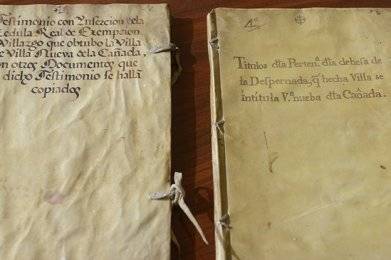 Testimonio con Ynsezcion dela
Cedula Real de Exempcion
Villazgo que obtubo la Villa
e Villa Nueva dela Cañada,
on otros Documentos que
dicho Testimonio se hallã
copiados
4º
Titulos dla Perten.ª dla dehesa de
la Despernada, q̃ hecha Villa se
intitula V.ª nueba dla Cañada.